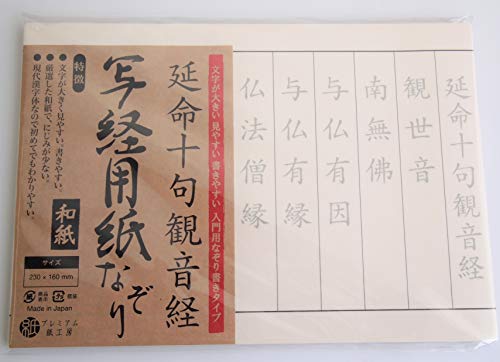 延命十句観音経
観世音
南無佛
与仏有因
与仏有縁
仏法僧縁
文字が大きい 見やすい 書きやすい 入門用なぞり書きタイプ
延命十句観音経
写経用紙なぞり
特徴
●文字が大きく見やすい。書きやすい。
●厳選した和紙で、にじみが少ない。
●現代漢字体なので初めてでもわかりやすい。
和紙
サイズ
230×160mm
商品
表示
個装
Made in Japan
紙
プレミアム
紙工房